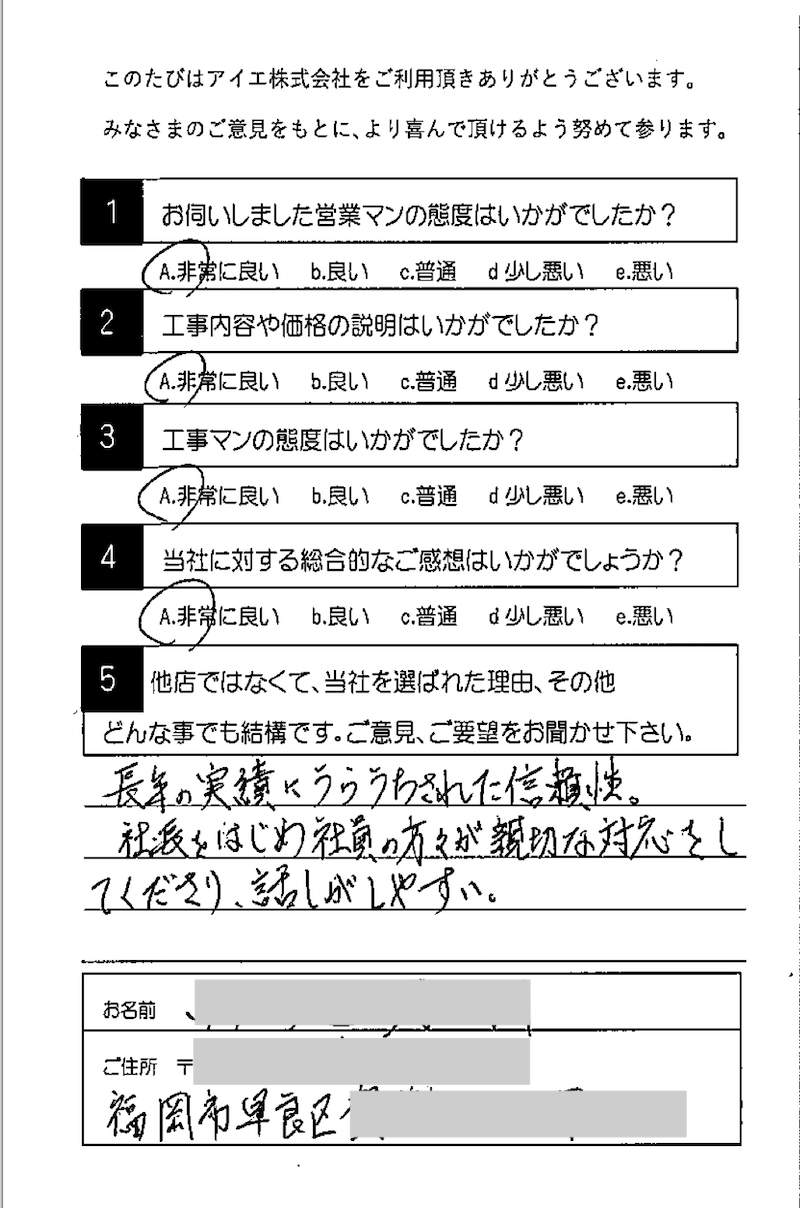 このたびはアイエ株式会社をご利用頂きありがとうございます。
みなさまのご意見をもとに、より喜んで頂けるよう努めて参ります。
1 お伺いしました営業マンの態度はいかがでしたか？
A.非常に良い b.良い c.普通 d 少し悪い e.悪い
2 工事内容や価格の説明はいかがでしたか？
A.非常に良い b.良い c.普通 d 少し悪い e.悪い
3 工事マンの態度はいかがでしたか？
A.非常に良い b.良い c.普通 d 少し悪い e.悪い
4 当社に対する総合的なご感想はいかがでしょうか？
A.非常に良い b.良い c.普通 d 少し悪い e.悪い
5 他店ではなくて、当社を選ばれた理由、その他
どんな事でも結構です。ご意見、ご要望をお聞かせ下さい。
長年の実績にうらうちされた信頼性。
社長をはじめ社員の方々が親切な対応をし
てくださり、話しがしやすい。
お名前
ご住所 〒
福岡市早良区